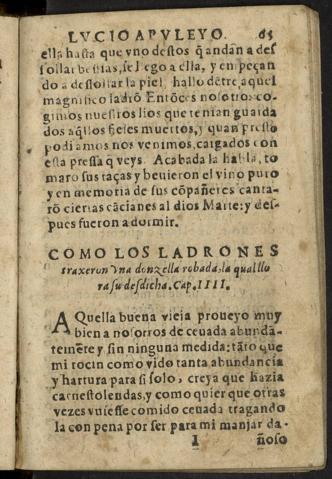 LVCIO APVLEYO. 65
ella hasta que vno destos q̃ andan a des
sollar bestias, se llego a ella, y empeçan
do a desollar la piel, hallo dẽtro aquel
magnifico ladrõ Entõces nosotros co-
gimos nuestros lios que tenian guarda
dos aq̃llos fieles muertos, y quan presto
podiamos nos venimos, cargados con
esta pressa q̃ veys. Acabada la habla, to
maro sus taças y beuieron el vino puro
y en memoria de sus cõpañeros canta-
rõ ciertas cãciones al dios Marte: y des-
pues fueron a dormir.
COMO LOS LADRONES
traxeron vna donzella robada, la qual llo
ra su desdicha. Cap. IIII.
AQuella buena vieja proueyo muy
bien a nosotros de ceuada abundã-
temẽte y sin ninguna medida: tãto que
mi rocin como vido tanta abundancia
y hartura para si solo, creya que hazia
carnestolendas, y como quier que otras
vezes vuiesse comido ceuada tragando
la con pena por ser para mi manjar da-
I ñoso